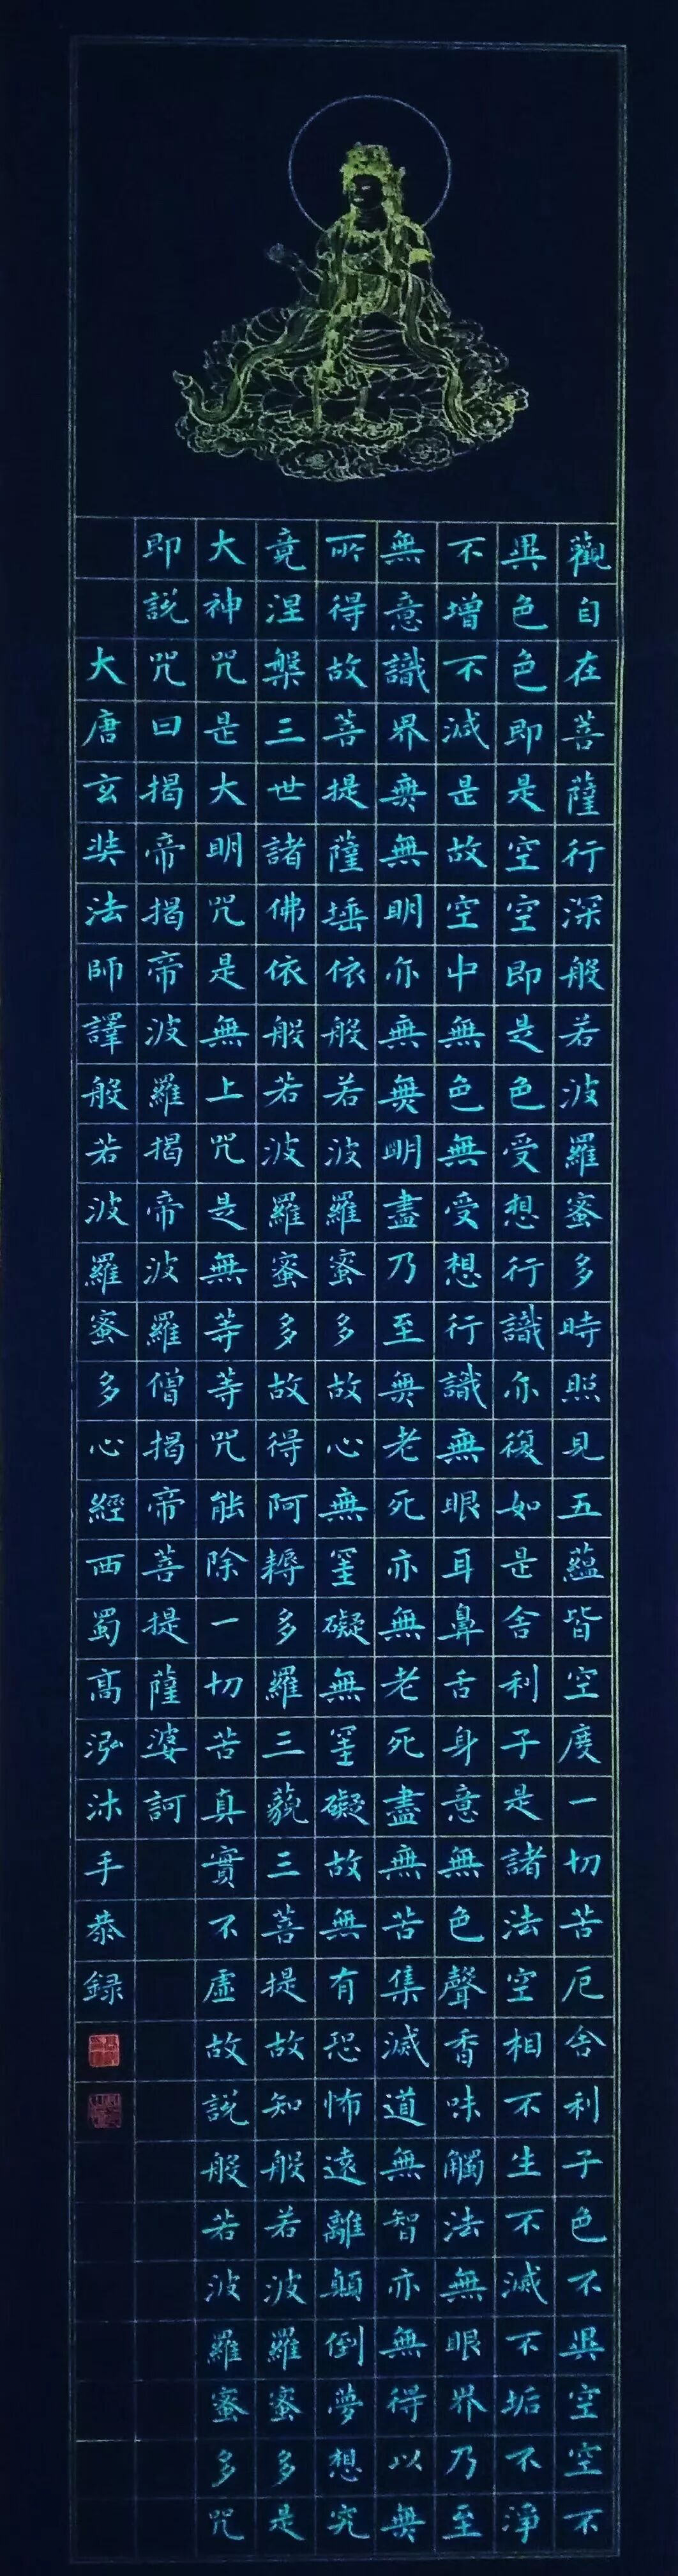 觀自在菩薩行深般若波羅蜜多時照見五蘊皆空度一切苦厄舍利子色不異空空不
異色色即是空空即是色受想行識亦復如是舍利子是諸法空相不生不滅不垢不淨
不增不減是故空中無色無受想行識無眼耳鼻舌身意無色聲香味觸法無眼界乃至
無意識界無無明亦無無明盡乃至無老死亦無老死盡無苦集滅道無智亦無得以無
所得故菩提薩埵依般若波羅蜜多故心無罣礙無罣礙故無有恐怖遠離顛倒夢想究
竟涅槃三世諸佛依般若波羅蜜多故得阿耨多羅三藐三菩提故知般若波羅蜜多是
大神咒是大明咒是無上咒是無等等咒能除一切苦真實不虛故說般若波羅蜜多咒
即說咒曰揭帝揭帝波羅揭帝波羅僧揭帝菩提薩婆訶
大唐玄奘法師譯般若波羅蜜多心經西蜀高泓沐手恭録